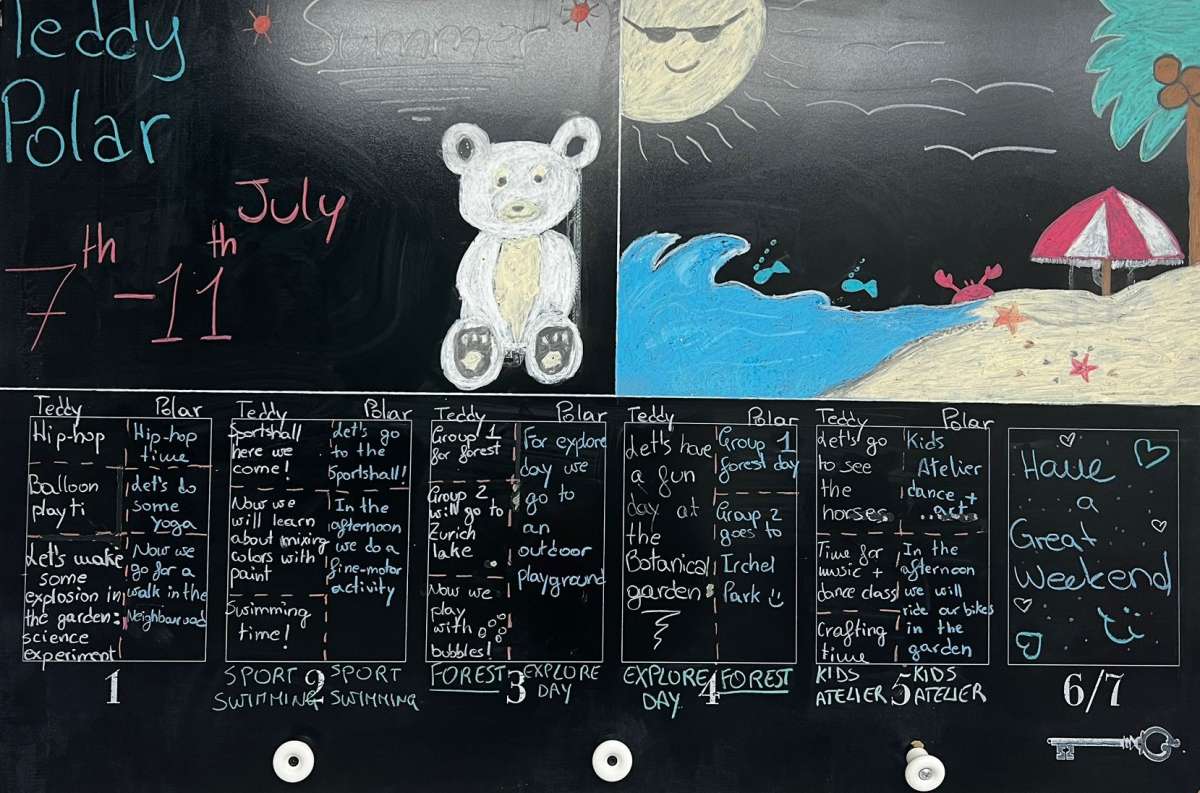 Teddy
Polar
Summer
7th - 11th July
Teddy
Hip-hop
Balloon
play ti
Let's make
some
explosion in
the garden:
science
experiment
Polar
Hip-hop
time
Let's do
some
yoga
Now we
go for a
walk in the
Neighbourood
1
Teddy
Sportshall
here we
come!
Now we
will learn
about mixing
colors with
paint
Swimming
time!
Polar
Let's go
to the
Sportshall!
In the
afternoon
we do a
fine-motor
activity
SPORT
SWIMMING
2
SPORT
SWIMMING
Teddy
Group 1
for forest
Group 2
will go to
Zurich
lake
Now we
play
with
bubbles!
Polar
For explore
day we
go to
an
outdoor
playground
FOREST
3
EXPLORE
DAY
Teddy
Let's have
a fun
day at
the
Botanical
garden
Polar
Group 1
forest day
Group 2
goes to
Irchel
Park
EXPLORE
DAY
4
FOREST
Teddy
Let's go
to see
the
horses
Time for
music +
dance class
Crafting
time
Polar
Kids
Atelier
dance +
art
In the
afternoon
we will
ride our bikes
in the
garden
KIDS
ATELIER
5
KIDS
ATELIER
Have
a
Great
Weekend
6/7